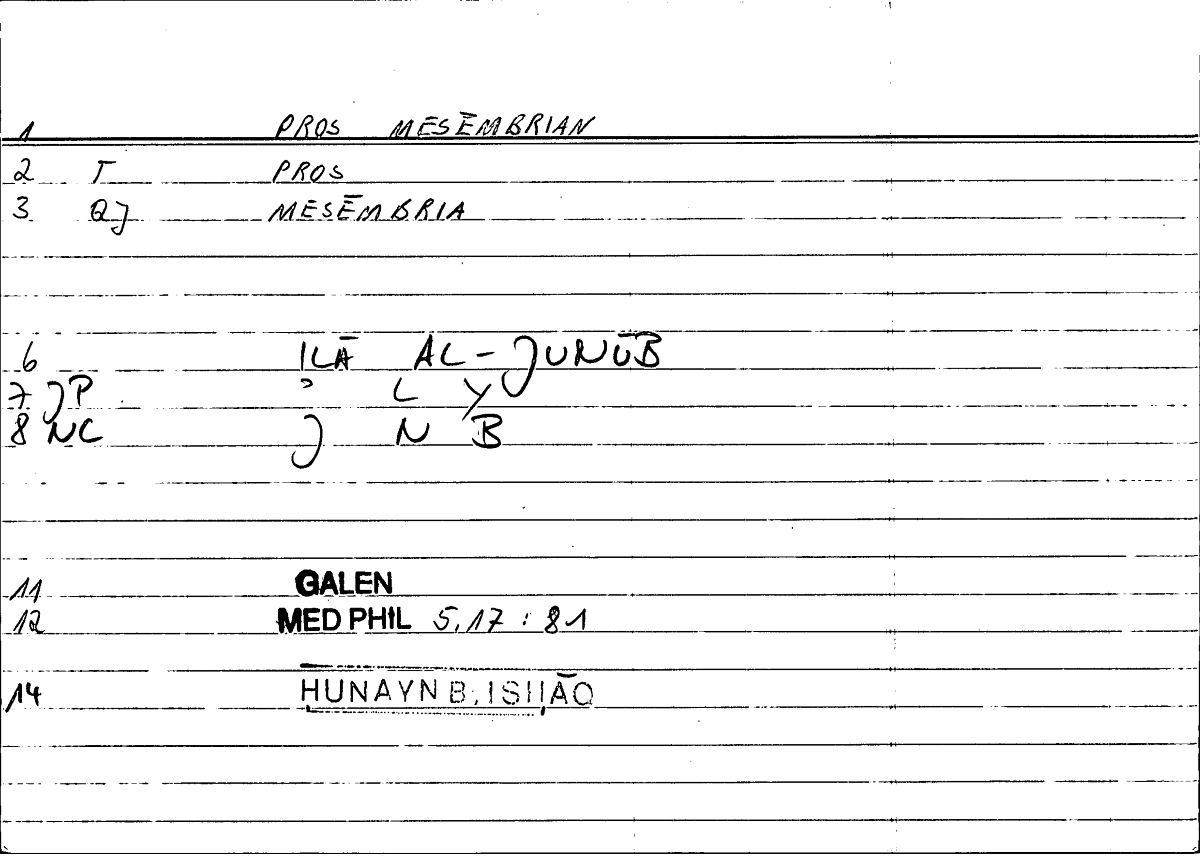 1 PROS MESĒMBRIAN
2 T PROS
3 QJ MESĒMBRIA
6 ILĀ AL-JUNŪB
7 JP ʾ L Y
8 NC J N B
11 GALEN
12 MED PHIL 5,17 : 81
14 HUNAYN B. ISḤĀQ